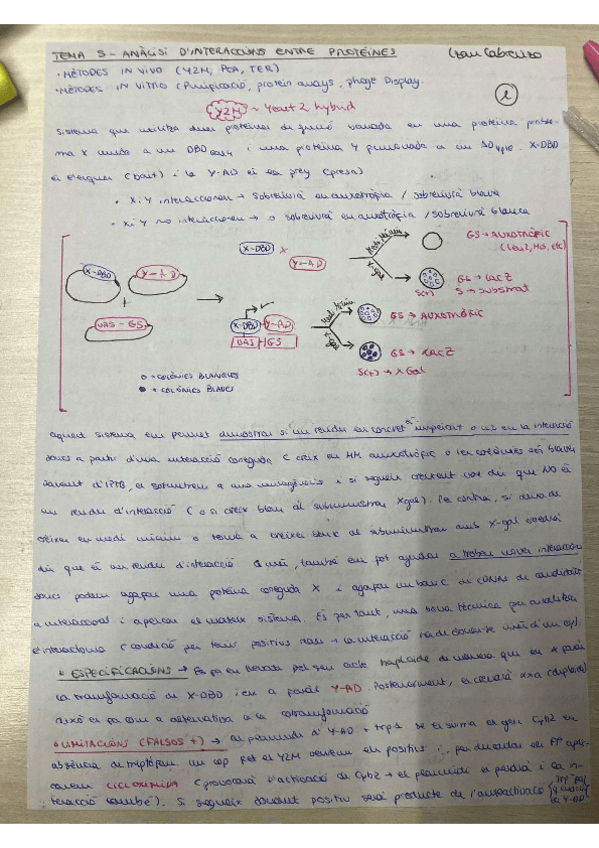 TEMA 5 - ANÀLISI D'INTERACCIONS ENTRE PROTEÏNES
· MÈTODES IN VIVO (Y2H, PCA, TER)
· MÈTODES IN VITRO (Purificació, protein arrays, phage Display.
1
Y2H ~ Yeast 2 hybrid
Sistema que utilitza dues proteïnes de fusió basada en una proteïna proble-
ma X unida a un DBD i una proteïna Y fusionada a un AD. X-DBD
és l'esquer (bait) i la Y-AD és la prey (presa)
· X i Y interaccionen → sobreviurà en auxotròpia / sobreviurà blava
· X i Y no interaccionen → no sobreviurà en auxotròpia / sobreviurà blanca
X-DBD
Y-AD
+
UAS - GS
X-DBD
+
Y-AD
X-gal
GS → AUXOTRÒFIC
(Leu2, His, etc)
GS → LACZ
S → SUBSTRAT
X-DBD
Y-AD
UAS
GS
GS → AUXOTRÒFIC
GS → LACZ
S(+) → X Gal
o → COLÒNIES BLANQUES
● → COLÒNIES BLAVES
aquest sistema em permet demostrar si un residu en concret és important o no en la interacció
doncs a partir d'una interacció coneguda (creix en MM auxotròfic o les colònies són blaves
davant d'IPTG, el sotmetem a una mutagènesis i si segueix creixent vol dir que NO és
un residu d'interacció (o si creix blau al subministrar Xgal). Per contra, si deixa de
créixer en medi mínim o torna a créixer blanc al subministrar amb X-gal voldrà
dir que és un residu d'interacció. A més, també em pot ajudar a trobar nova interacció
doncs podem agafar una proteïna coneguda X i agafar un banc de cDNAs de candidats
a interaccionar i aplicar el mateix sistema. És per tant, una bona tècnica per analitzar
· ESPECIFICACIONS → Es fa en llevats pel seu cicle haploide de manera que en α faràs
la transformació de X-DBD i en a faràs Y-AD. Posteriorment, es creuarà α x a (diploide)
Això es fa com a alternativa a la cotransformació
· LIMITACIONS (FALSOS +) → al plasmidi d' Y-AD + trp1 se li suma el gen Cyh2 en
absència de triptòfan. Un cop fet el Y2H
CICLOHEXIMIDA (provocarà l'activació de Cyh2 → el plasmidi es perdrà i la in-
teracció també). Si segueix donant positiu serà producte de l'autoactivació